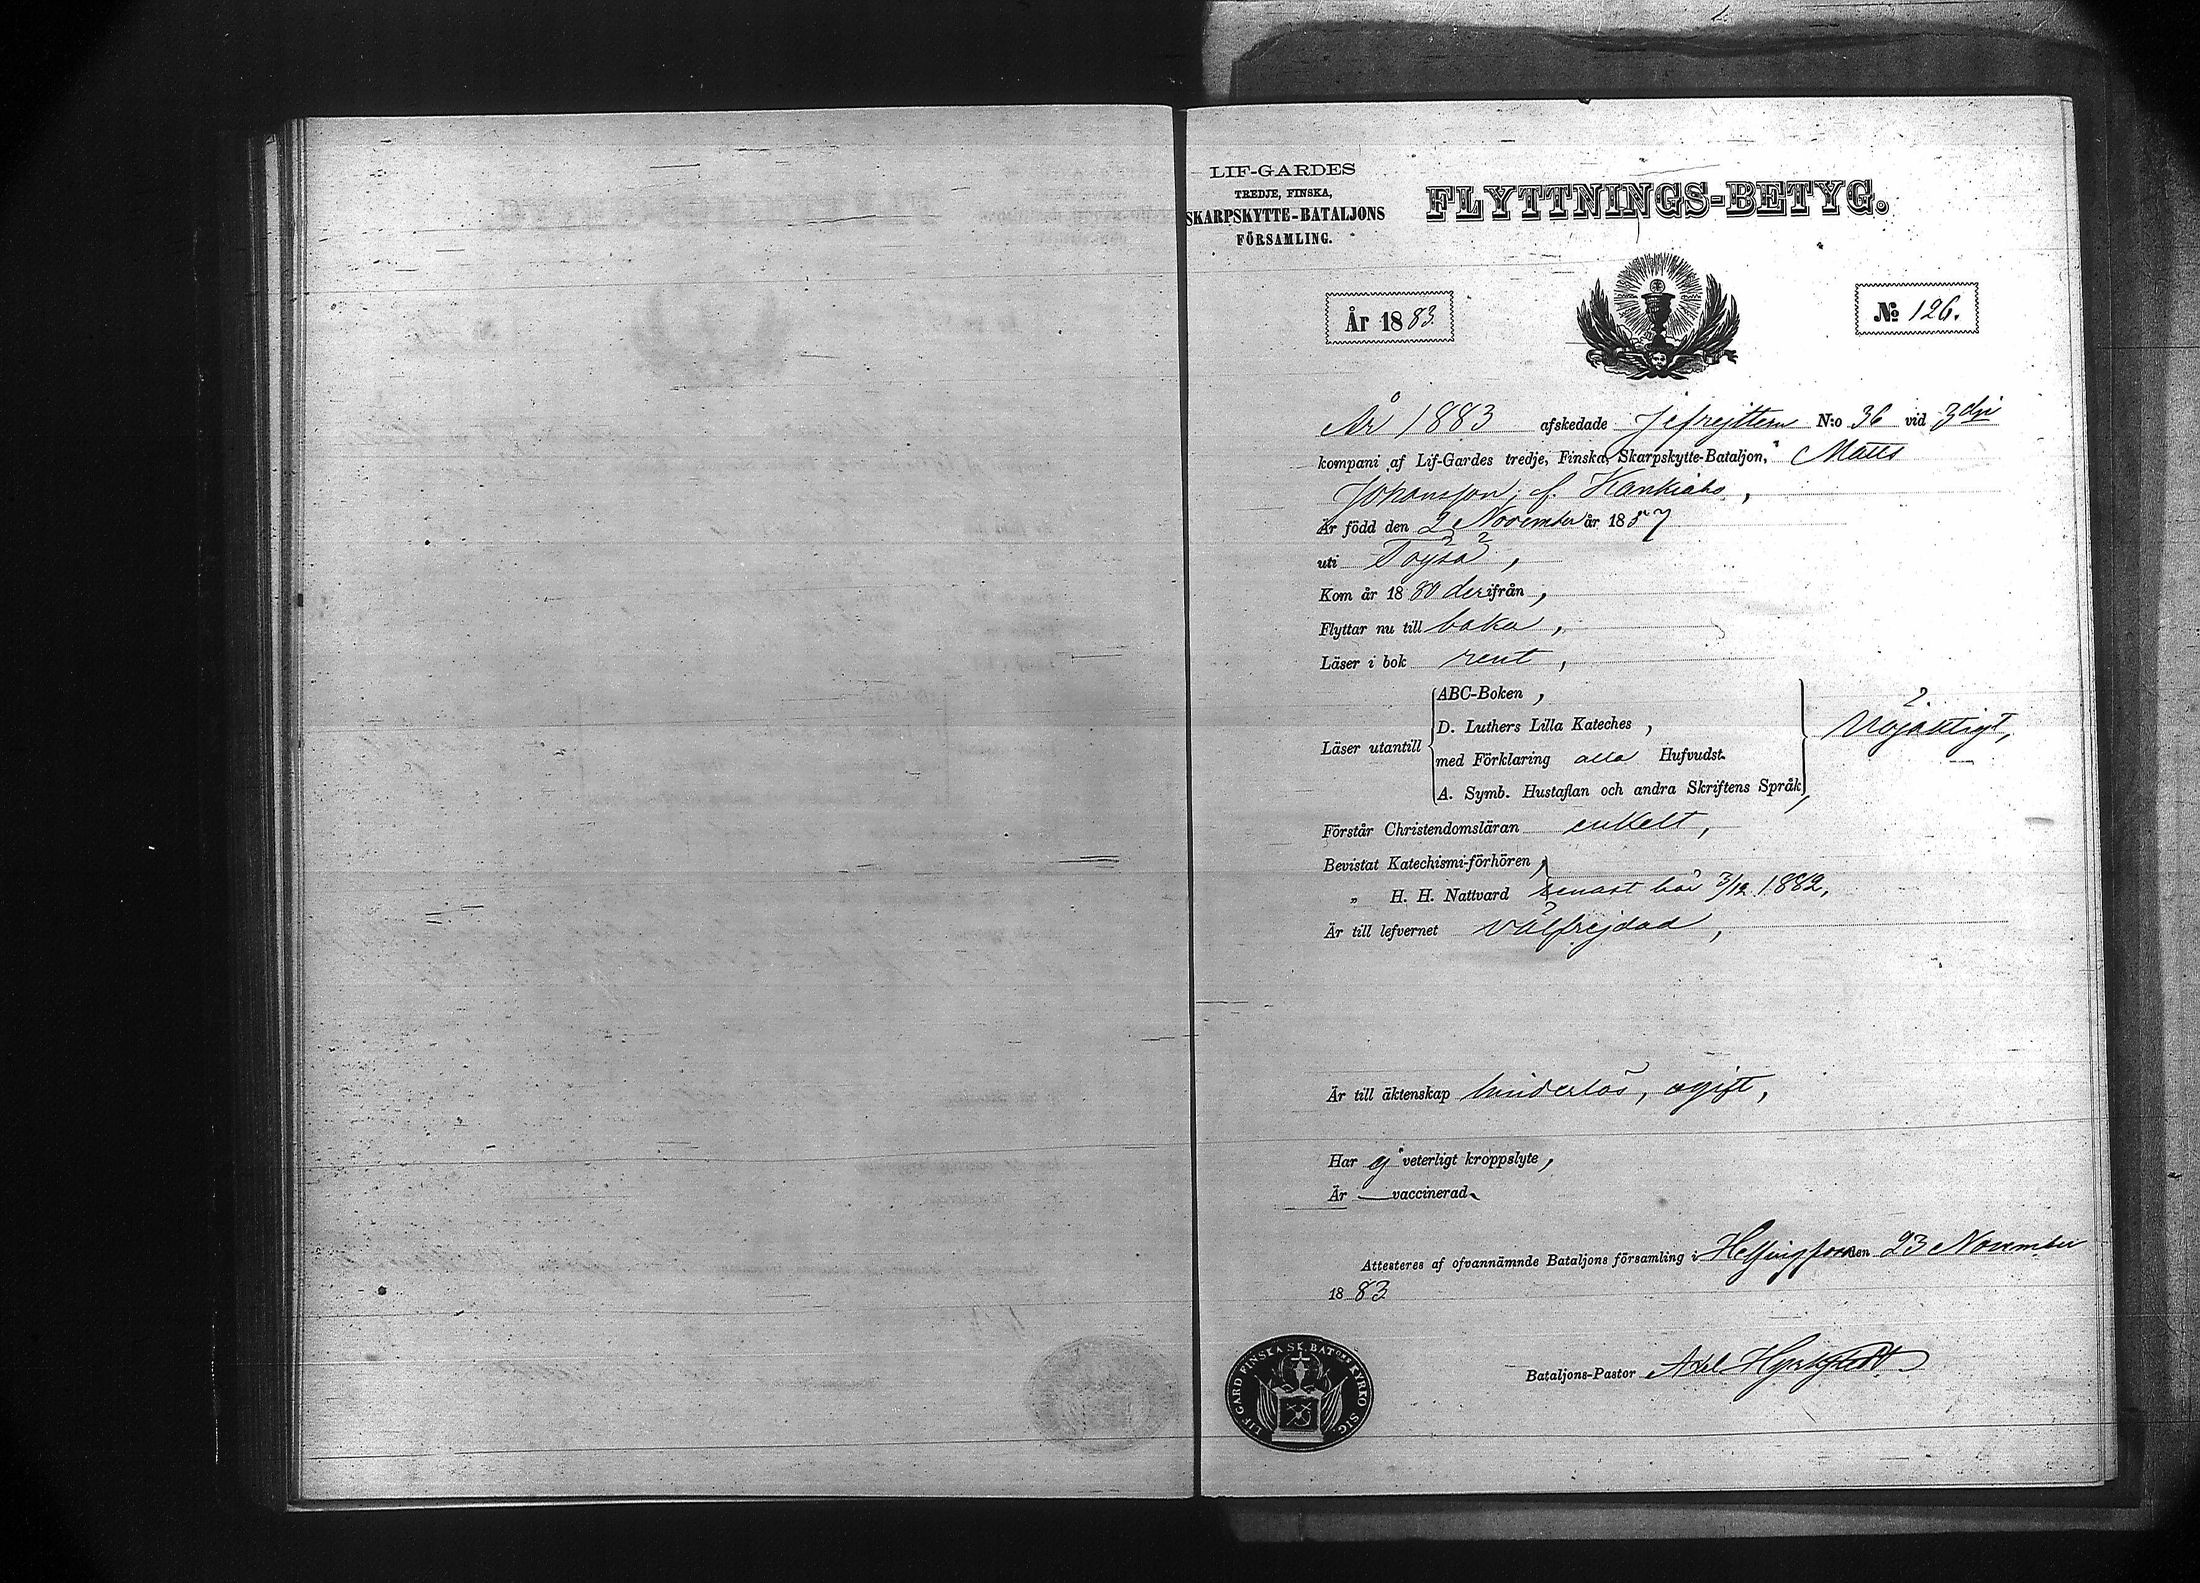 LIF-GARDES
TREDJE, FINSKA,
SKARPSKYTTE-BATALJONS
FÖRSAMLING.
FLYTTNINGS-BETYG.
År 1883.
№ 126.
År 1883 afskedade Jefrejttern N:o 36 vid 3dje
kompani af Lif-Gardes tredje, Finska, Skarpskytte-Bataljon, Matts
Johansson, f.
Är född den 2 November år 1857
uti Töysä,
Kom år 1880 derifrån,
Flyttar nu till baka,
Läser i bok rent,
Läser utantill
ABC-Boken,
D. Luthers Lilla Kateches,
med Förklaring alla Hufvudst.
A. Symb. Hustaflan och andra Skriftens Språk,
Nöjaktigt,
Förstår Christendomsläran enkelt,
Bevistat Katechismi-förhören,
„ H. H. Nattvard senast här 3/12 1882,
Är till lefvernet välfrejdad,
Är till äktenskap hinderlös, ogift,
Har ej veterligt kroppslyte,
Är — vaccinerad.
Attesteres af ofvannämnde Bataljons församling i Helsingfors den 23 November
1883
Bataljons-Pastor Axel
LIF GARD FINSKA SK. BATONS KYRKO SIG.